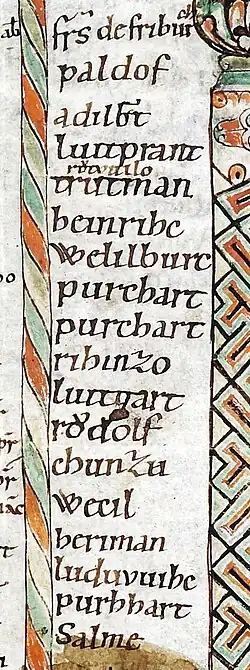 frs de friburc
paldof
adilbt
luttprant
trutman
heinrihc
welilburc
purchart
purchart
rihinzo
luttgart
rodolf
chunzu
wecil
heriman
luduvuihc
purhhart
Salme